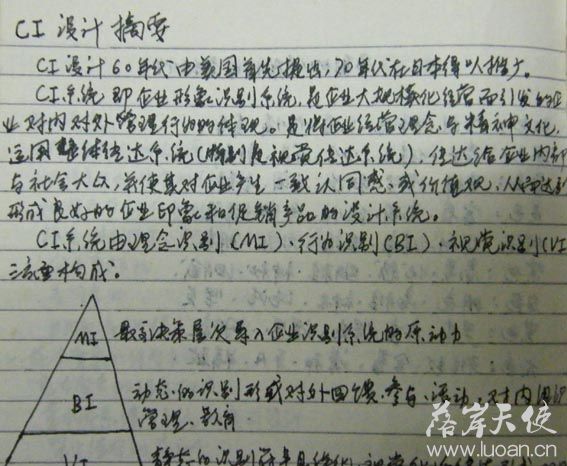 CI 设计 摘要
CI设计60年代由美国首先提出,70年代在日本得以推广。
CI系统即企业形象识别系统,是企业大规模化经营而引发的企
业对内对外管理行为的体现。是将企业经营理念与精神文化,
运用整体传达系统(特别是视觉传达系统),传达给企业内部
与社会大众,并使其对企业产生一致认同感或价值观,从而达到
形成良好的企业印象和促销产品的设计系统。
CI系统由理念识别(MI)、行为识别(BI)、视觉识别(VI
三方面构成。
MI 最高决策层次导入企业识别系统的原动力
BI 动态的识别形式对外回馈、参与、活动,对内组织
管理、教育
VI 静态的识别符号具体化
落岸天使
www.luoan.cn